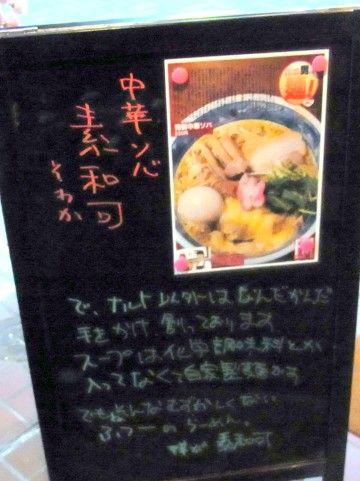 中華ソバ
素和可
そわか
特製中華ソバ
で、ナルト以外はなんだかんだ
手をかけ創っております
スープは化学調味料とか
入ってなくて自家製麺です
でもそんなむずかしくない
ふつーのらーめん。
素和可